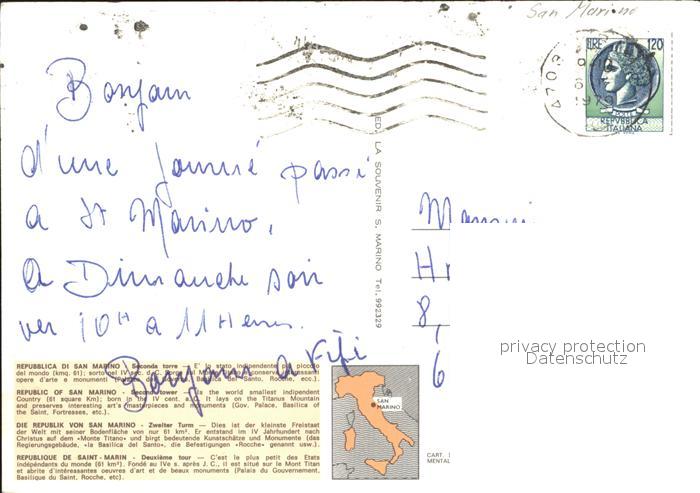 San Marino
LIRE 120
POSTE
REPVBBLICA
ITALIANA
1976
Bonjour
d'une Journé passé
a St Marino,
a Dimanche soir
ver 10H a 11 Heures.
Bonjour a Fifi
ED. LA SOUVENIR S. MARINO Tel. 992329
8,
6
privacy protection
Datenschutz
REPUBBLICA DI SAN MARINO - Seconda torre — E' lo stato indipendente più piccolo
del mondo (kmq. 61); sorto nel IV sec. d. C.
opere d'arte e monumenti Basilica del Santo, Rocche, ecc.).
REPUBLIC OF SAN MARINO - Second tower — Is the world smallest independent
Country (61 square Km); born in the IV cent. a. It lays on the Titanus Mountain
and preserves interesting art's masterpieces and monuments (Gov. Palace, Basilica of
the Saint, Fortresses, etc.).
DIE REPUBLIK VON SAN MARINO - Zweiter Turm — Dies ist der kleinste Freistaat
der Welt mit seiner Bodenfläche von nur 61 km². Er entstand im IV Jahrhundert nach
Christus auf dem «Monte Titano» und birgt bedeutende Kunstschätze und Monumente (das
Regierungsgebäude, «la Basilica del Santo», die Befestigungen «Rocche» genannt usw.).
REPUBLIQUE DE SAINT-MARIN - Deuxième tour — C'est le plus petit des Etats
indépendants du monde (61 km²). Fondé au IVe s. après J. C., il est situé sur le Mont Titan
et abrite d'intéressantes oeuvres d'art et de beaux monuments (Palais du Gouvernement,
Basilique du Saint, Forteresses, etc.).
SAN
MARINO
CART.
MENTAL